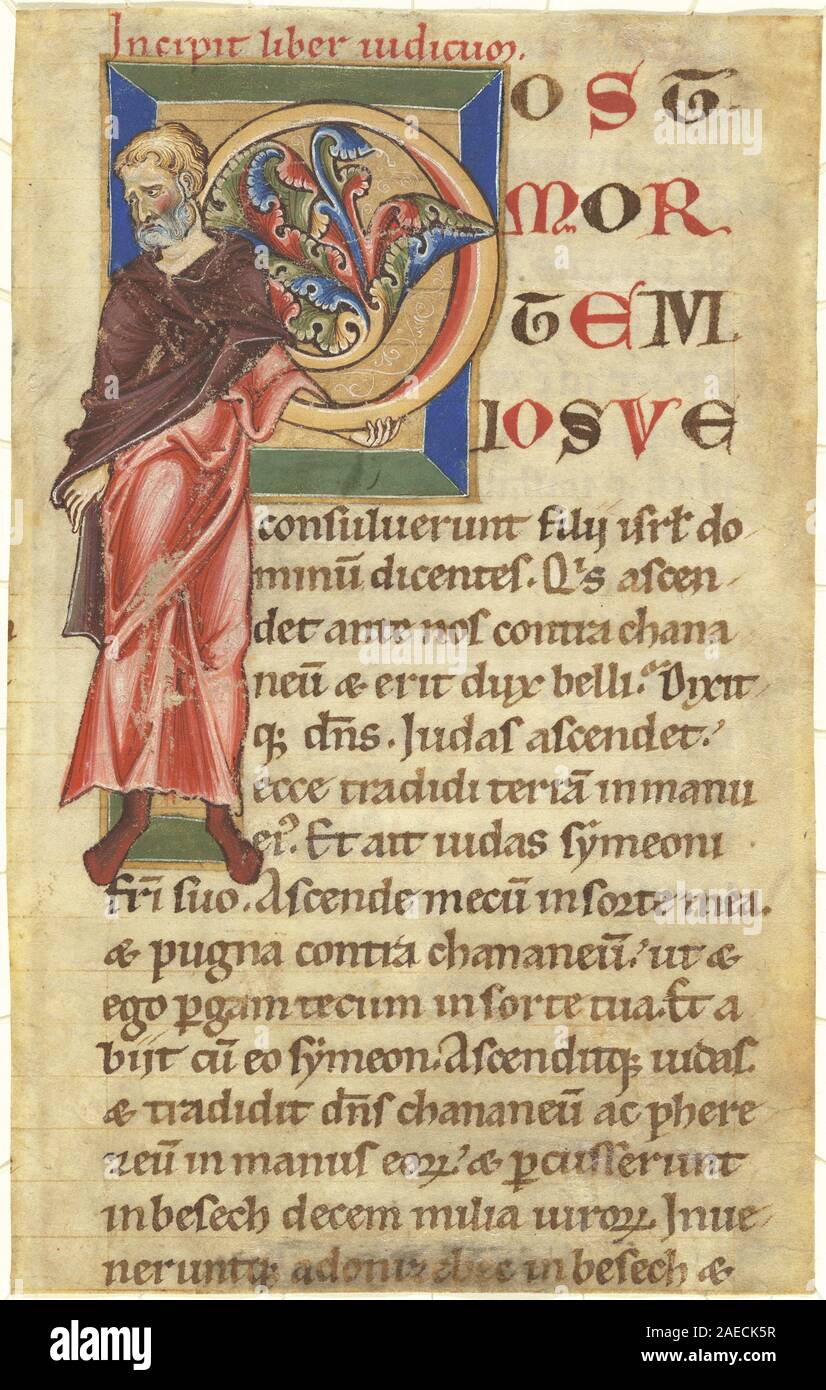 Incipit liber iudicum.
POST
MOR
TEM
IOSVE
consuluerunt filij isrl do
minū dicentes. Qis ascen
det ante nos contra chana
neū & erit dux belli. Dixit
q; dn̄s. Iudas ascendet.
ecce tradidi terrā in manu
ei9. Et ait iudas symeoni
fr̄i suo. Ascende mecū in sorte mea.
& pugna contra chananeū. ut &
ego pgam tecum in sorte tua. Et a
biit cū eo symeon. Ascenditq; iudas.
& tradidit dn̄s chananeū ac phere
zeū in manus eoꝝ. & pcusserunt
in besech decem milia uiroꝝ. Inue
neruntq; adonibezec in besech &
alamy
Image ID: 2AECK5R
www.alamy.com